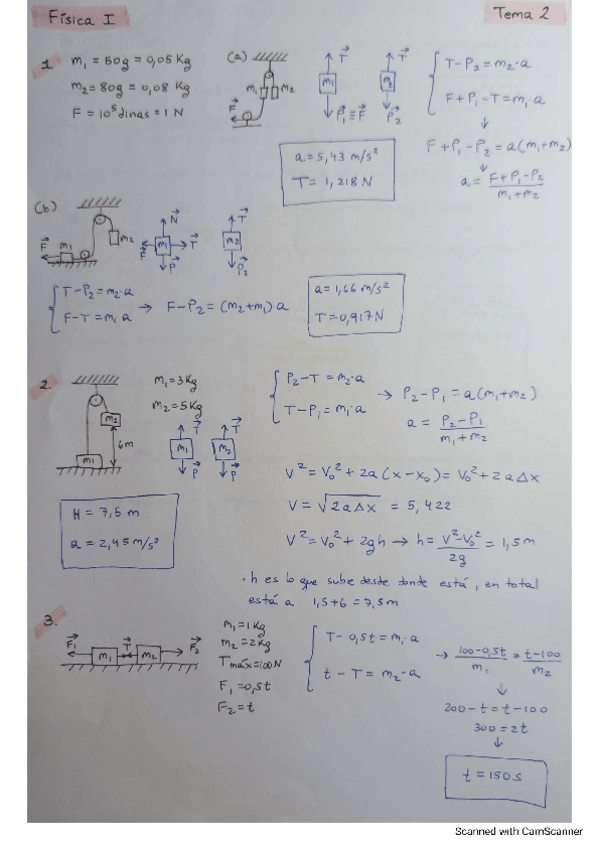 Física I
Tema 2
1
m₁ = 50g = 0,05 Kg
m₂ = 80g = 0,08 Kg
F = 10⁵ dinas = 1 N
(a)
m₁ m₂
F⃗
T⃗
m₁
P⃗₁ ≡ F⃗
T⃗
m₂
P⃗₂
T-P₂ = m₂·a
F+P₁-T = m₁·a
↓
F+P₁-P₂ = a(m₁+m₂)
↓
a = (F+P₁-P₂)/(m₁+m₂)
a = 5,43 m/s²
T = 1,218 N
(b)
m₂
F⃗ m₁
N⃗
F⃗ m₁ T⃗
P⃗
T⃗
m₂
P⃗₂
T-P₂ = m₂·a
F-T = m₁·a
→ F-P₂ = (m₂+m₁)·a
a = 1,66 m/s²
T = 0,917 N
2.
m₂
6m
m₁
m₁ = 3 Kg
m₂ = 5 Kg
T⃗
m₁
P⃗
T⃗
m₂
P⃗
P₂-T = m₂·a
T-P₁ = m₁·a
→ P₂-P₁ = a(m₁+m₂)
a = (P₂-P₁)/(m₁+m₂)
H = 7,5 m
a = 2,45 m/s²
V² = V₀² + 2a(x-x₀) = V₀² + 2aΔx
V = √(2aΔx) = 5,422
V² = V₀² + 2gh → h = (V²-V₀²)/2g = 1,5 m
· h es lo que sube desde donde está, en total
está a 1,5+6 = 7,5m
3.
F⃗₁ m₁ T⃗ m₂ F⃗₂
m₁ = 1 Kg
m₂ = 2 Kg
Tmáx = 100 N
F₁ = 0,5t
F₂ = t
T - 0,5t = m₁·a
t - T = m₂·a
→ (100-0,5t)/m₁ = (t-100)/m₂
↓
200-t = t-100
300 = 2t
↓
t = 150 s
Scanned with CamScanner